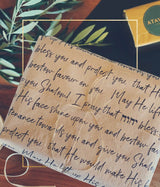 ATA
bless you and protect you, that He
bestow favour on you. May He lif
you Shalom! I pray that יהוה bless
His face shine upon you and bestow fa
tenance towards you and give you Shal
protect you, that He would make His